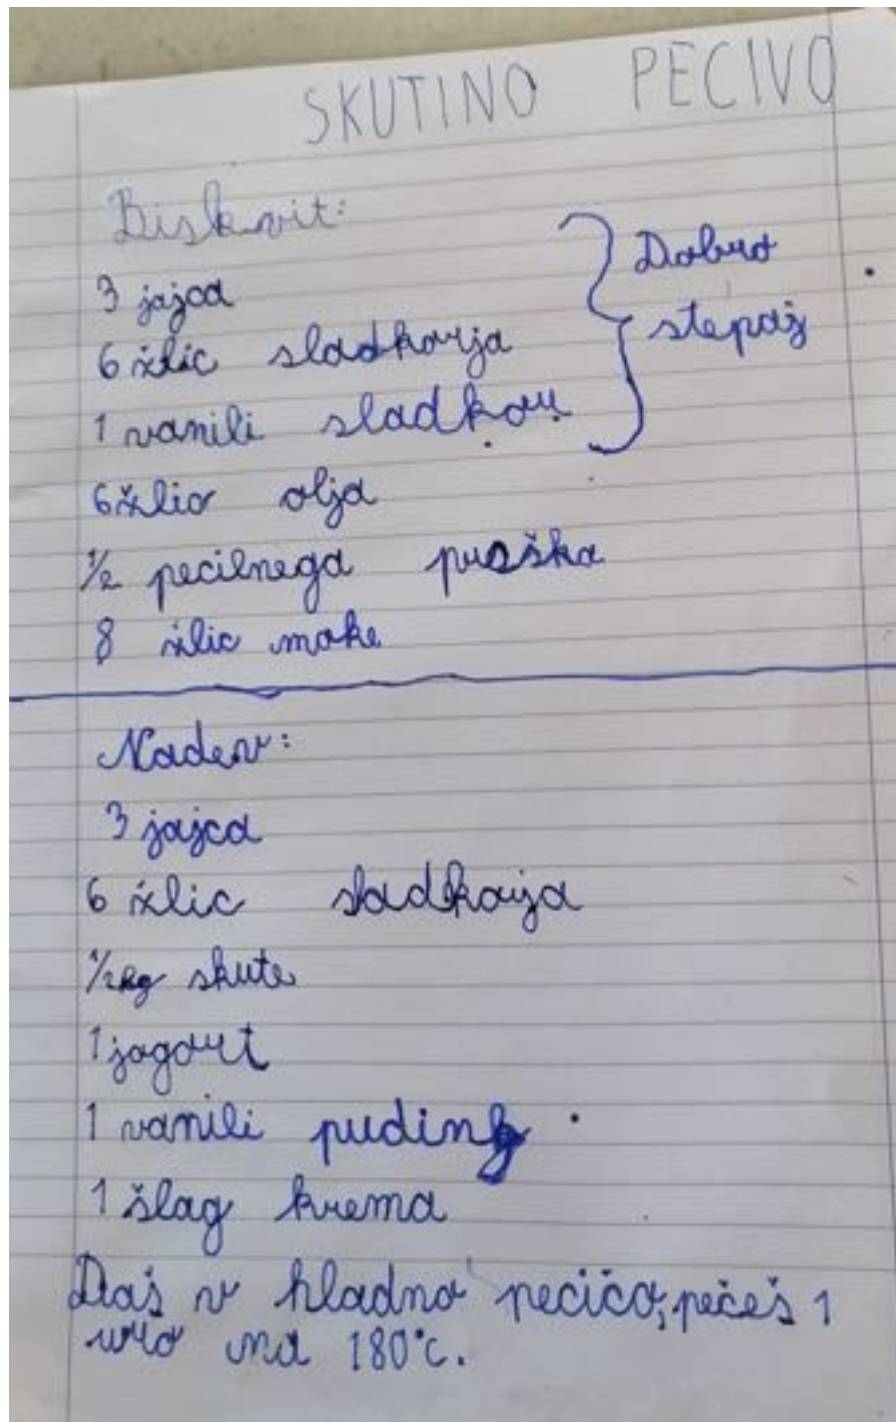 SKUTINO PECIVO
Biskvit:
3 jajca
Dobro
6 žlic sladkorja
stepaš
1 vanili sladkor
6 žlic olja
1/2 pecilnega praška
8 žlic moke
Nadev:
3 jajca
6 žlic sladkorja
1/2 kg skute
1 jogurt
1 vanili puding
1 šlag krema
Daš v hladno pečico, pečeš 1
uro na 180°C.